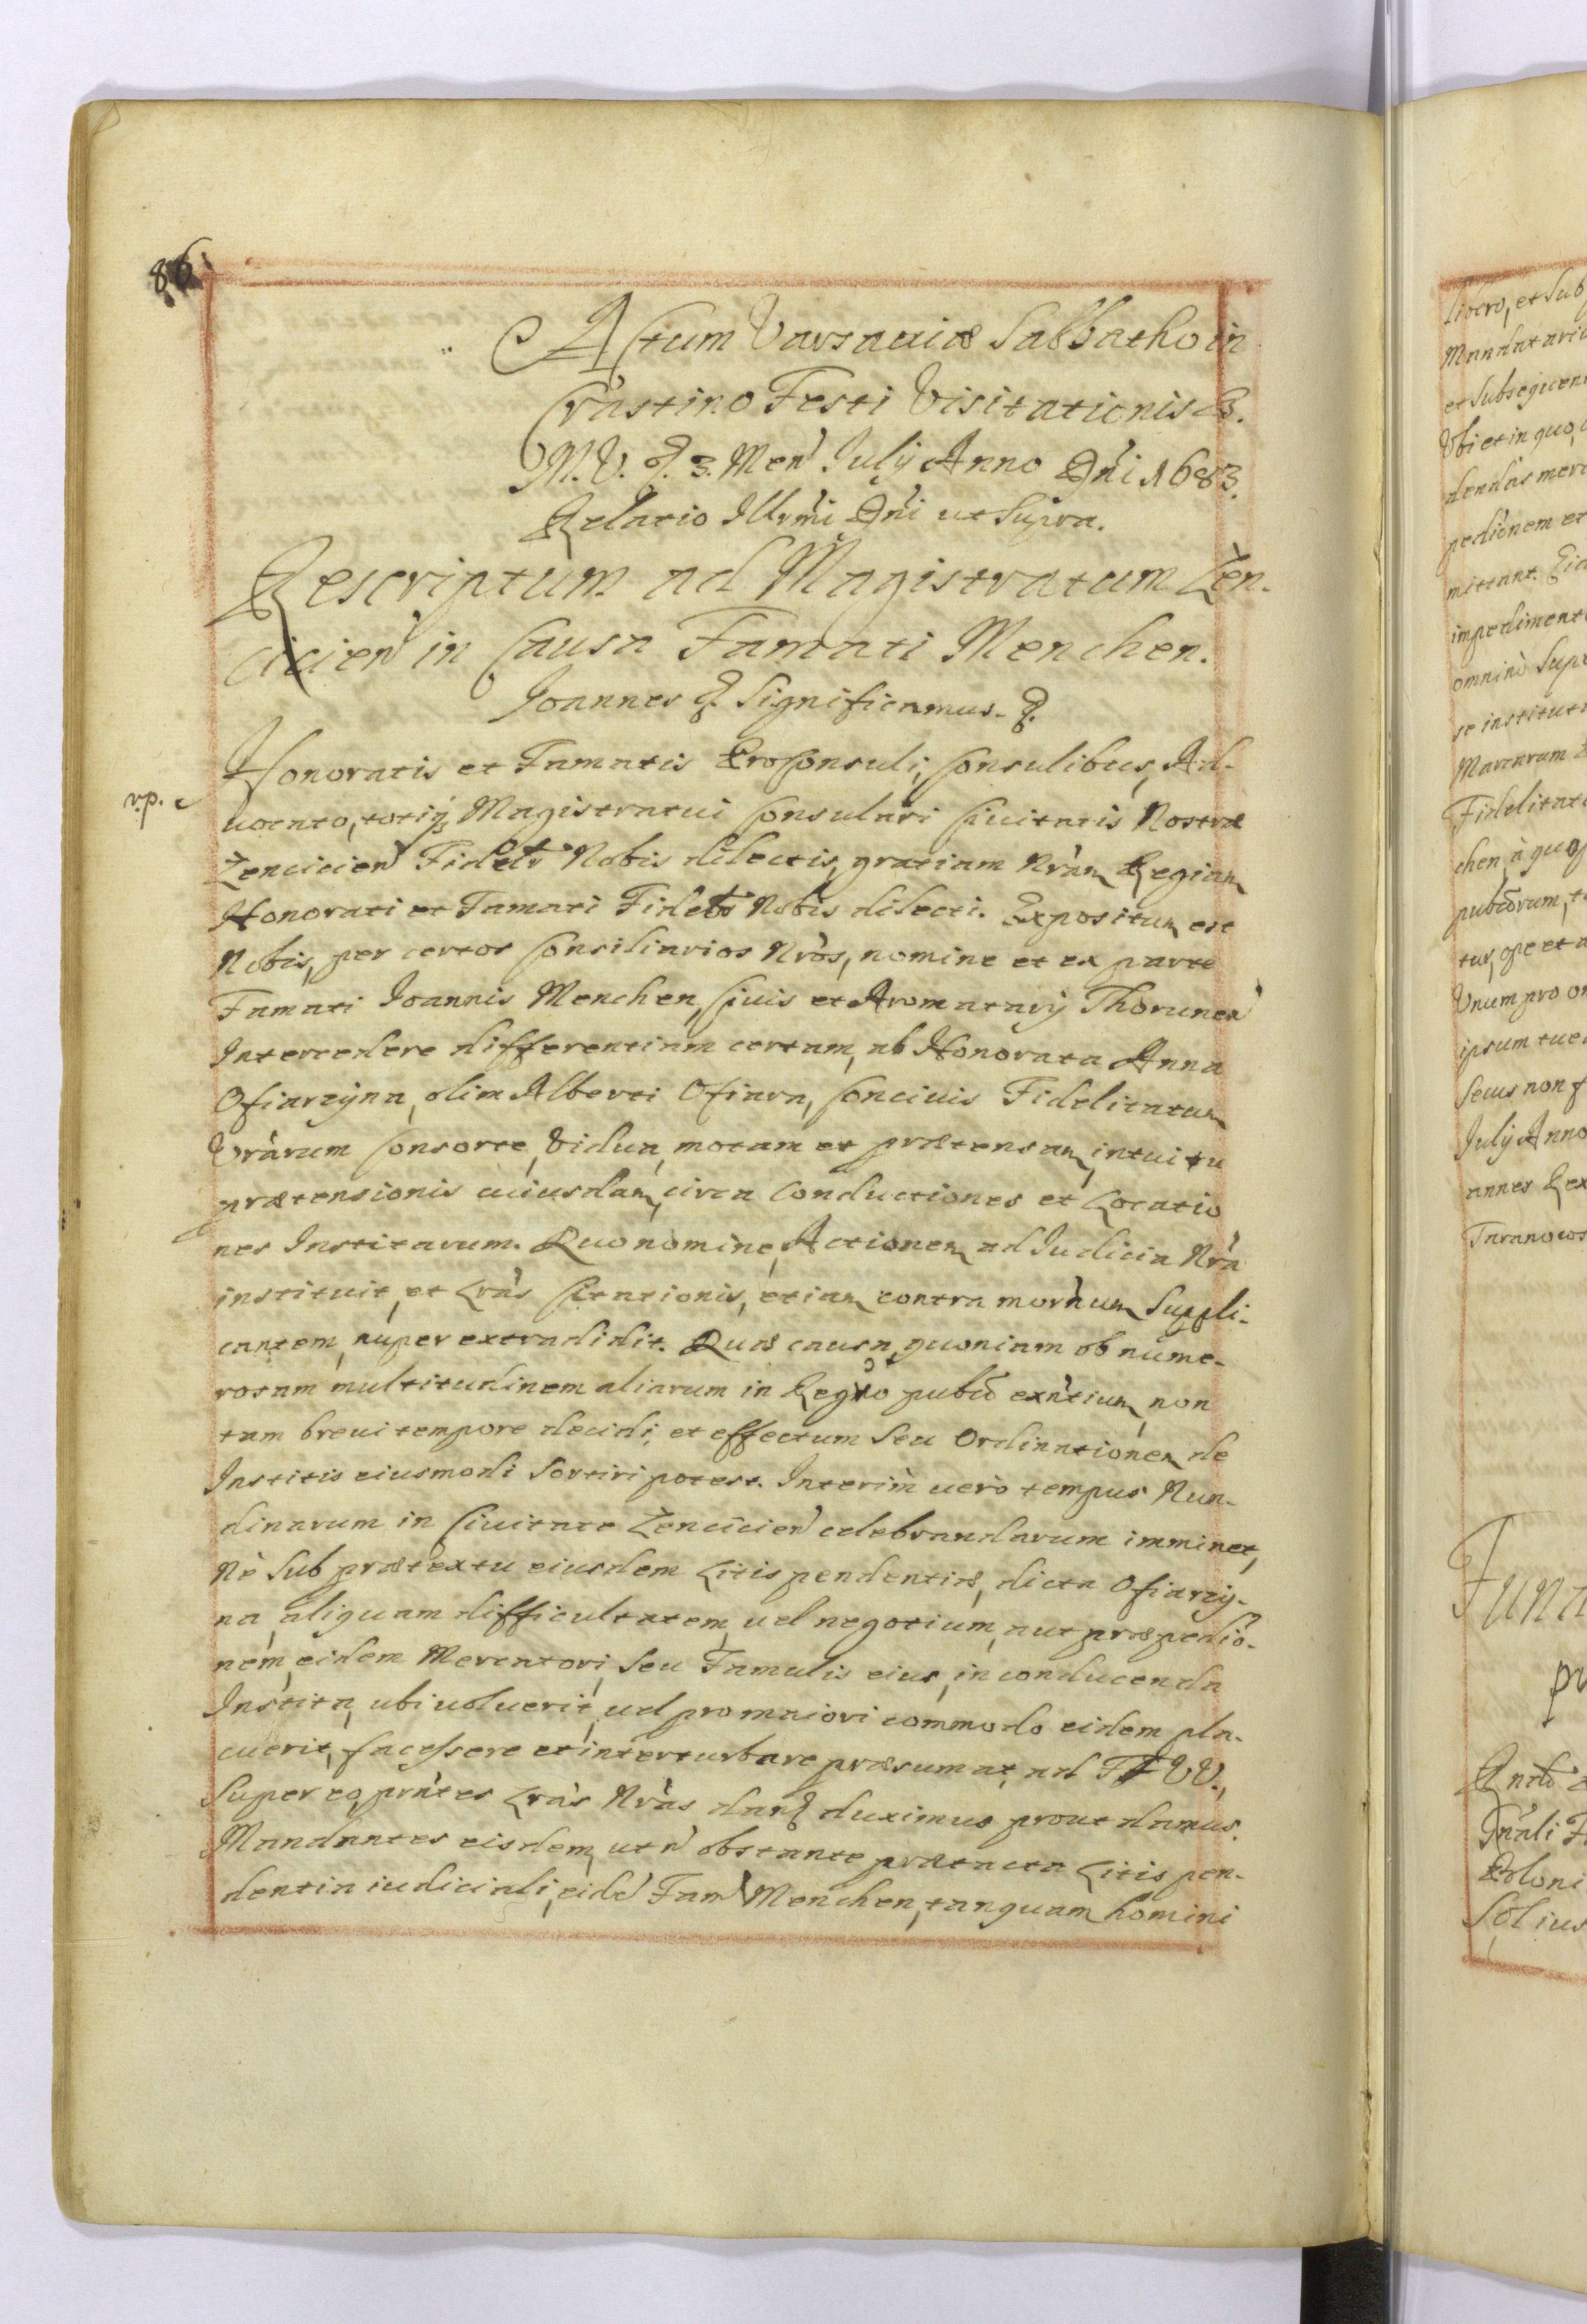 86
Actum Varsaviæ Sabbatho in
Crastino Festi Visitationis B.
M. V. &. 3. Men Iulij Anno Dñi 1683.
Relatio Illrmi Dñi ut supra.
Rescriptum ad Magistratum Łen-
cicien in Causa Famati Menchen.
Joannes &. Significamus. &.
Honoratis et Famatis ProConsuli, Consulibus, Ad-
v.p.
vocato, totiq; Magistratui Consulari Civitatis Nostræ
Łencicien Fidelr Nobis dilectis, gratiam Nram Regiam
Honorati et Famati Fideles Nobis dilecti. Expositum est
Nobis, per certos Consiliarios Nros, nomine et ex parte
Famati Joannis Menchen, Civis et Aromatarij Thorunen
Intercedere differentiam certam, ab Honorata Anna
Ofiarzyna, olim Alberti Ofiara, Concivis Fidelitatum
Vrarum Consorte, Vidua, motam et prætensam, intuitu
prætensionis cuiusdam, circa Conductiones et Locatio
nes Institarum. Quo nomine, Actionem ad Iudicia Nra
instituit, et Lras Citationis, etiam contra mornum Suppli-
cantem, nuper extradidit. Quæ causa, quoniam ob nume-
rosam multitudinem aliarum in Regro publo exntium, non
tam brevi tempore decidi, et effectum seu Ordinationem de
Institis eiusmodi sortiri potest. Interim vero tempus Nun-
dinarum in Civitate Łencicien celebrandarum imminet,
Ne sub prætextu eiusdem Litispendentiæ, dicta Ofiarzy-
na, aliquam difficultatem, vel negotium, aut præpedio-
nem, eidem Mercatori, seu Famulis eius, in conducenda
Instita, ubi voluerit, vel pro maiori commodo eidem pla-
cuerit, facessere et interturbare præsumat, ad FF VV.,
super eo, prntes Lras Nras dand duximus prout damus.
Mandantes eisdem, ut n obstante prætacta Litispen-
dentia iudiciali, eid Fam Menchen, tanquam homini
libero, et sub
Mandatari
et subsequen
Ubi et in quo,
dendas merc
pedionem et
mittant. Eid
impediment
omnino supe
se institut
Mercarum
Fidelitat
chen, a quo
publorum, t
tur, ope et a
Unum pro o
ipsum tue
Secus non f
Iulij Anno
annes Rex
Taranows
Funda
pr
Poloni